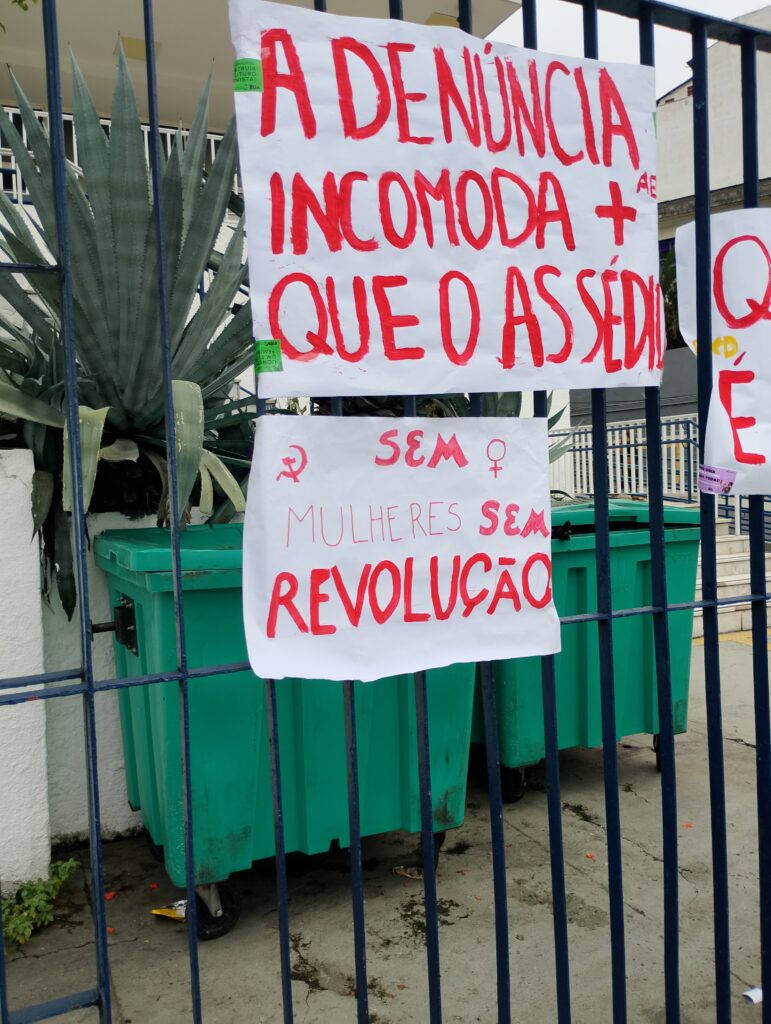 A DENÚNCIA
INCOMODA +
QUE O ASSÉDIO
SEM
MULHERES SEM
REVOLUÇÃO
Q
É